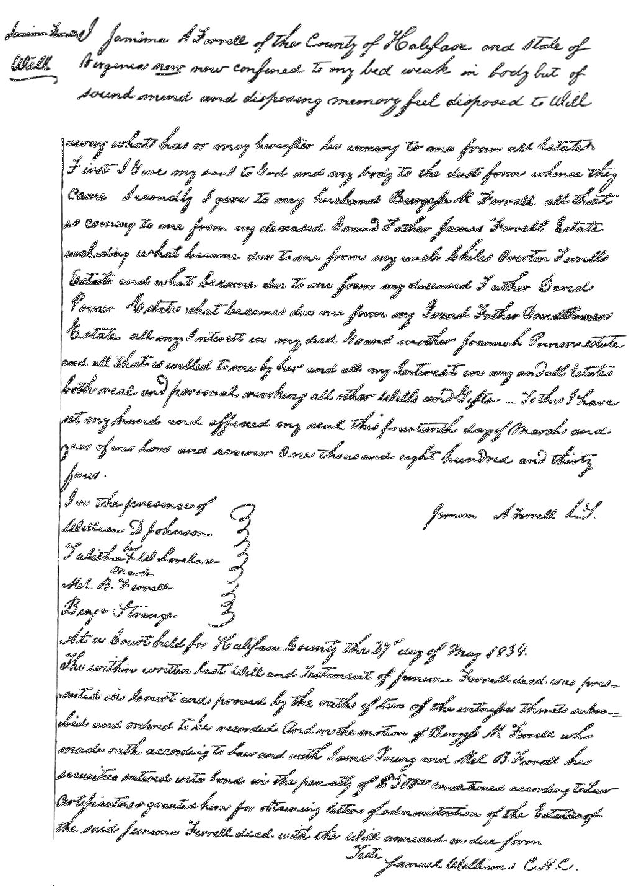 I Jemima A Ferrell of the County of Halifax and State of
Will
Virginia now now confined to my bed weak in body but of
sound mind and disposing memory feel disposed to Will
away whats has or may hereafter be coming to me from all Estates
First I Give my soul to God and my body to the dust from whence they
Came Secondly I give to my husband M Ferrell all that
is coming to me from my deceased Grand Father James Ferrell Estate
including what became due to me from my uncle Overton Ferrells
Estate and what became due to me from my deceased Father David
Estate what becomes due me from my Grand Father
Estate all my Interest in my decd Grand mother Estate
and all that is willed to me by her and all my Interests in any and all Estates
both real and personal revoking all other Wills and Gifts - To this I have
set my hand and affixed my seal this fourteenth day of March and
year of our Lord and saviour One thousand eight hundred and thirty
four.
In the presence of
William D Johnson
Jemima A Ferrell L.S.
Tabitha her
mark
B. Ferrell
At a Court held for Halifax County the 27th day of May 1834.
The within written last Will and Testament of Jemima Ferrell decd was pre-
sented in Court and proved by the oaths of two of the witnesses thereto subscri-
bed and ordered to be recorded And on the motion of M. Ferrell who
made oath according to law and with James Young and B Ferrell his
securities entered into bond in the penalty of conditioned according to Law
Certificate is granted him for obtaining letters of administration of the Estate of
the said Jemima Ferrell decd with the Will annexed in due form
Teste
Samuel Williams C.H.C.